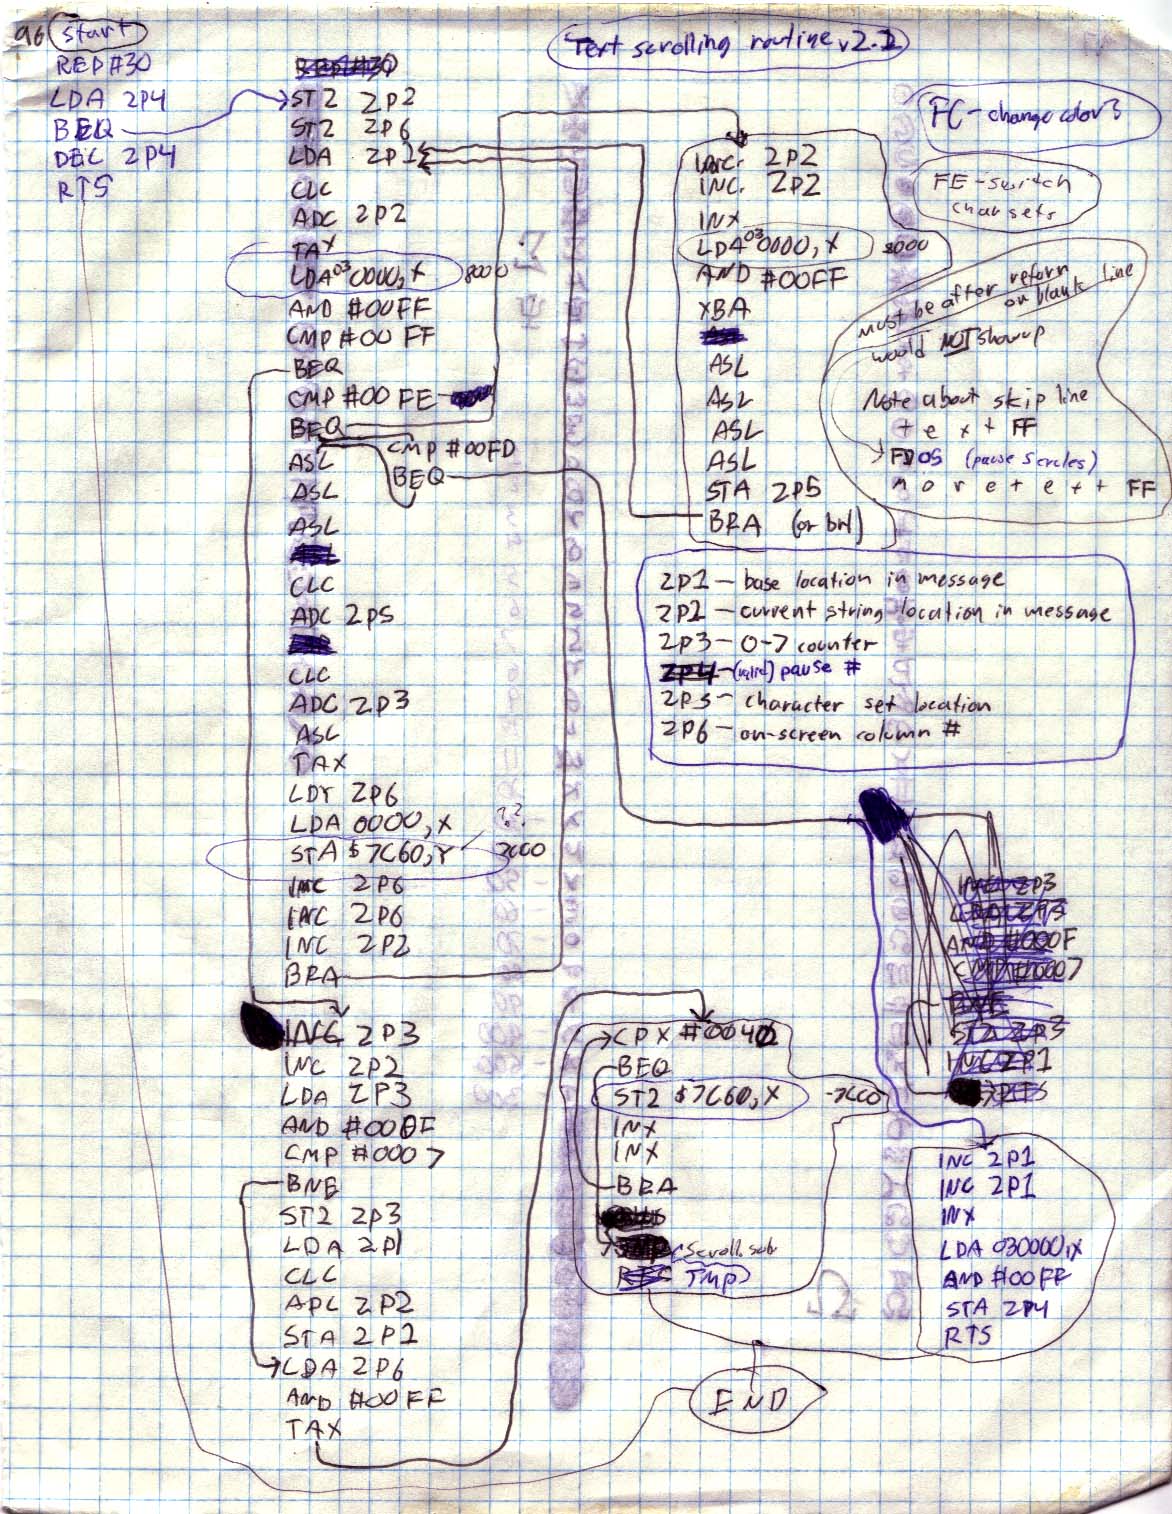 96 start
REP #30
LDA ZP4
BEQ
DEC ZP4
RTS
Text scrolling routine v2.1
REP #30
STZ ZP2
STZ ZP6
LDA ZP1
CLC
ADC ZP2
TAX
LDA 03 0000,X 8000
AND #00FF
CMP #00FF
BEQ
CMP #00FE
BEQ
CMP #00FD
BEQ
ASL
ASL
ASL
CLC
ADC ZP5
CLC
ADC ZP3
ASL
TAX
LDY ZP6
LDA 0000,X
??
STA $7C60,Y 7C00
INC ZP6
INC ZP6
INC ZP2
BRA
INC ZP3
INC ZP2
LDA ZP3
AND #000F
CMP #0007
BNE
STZ ZP3
LDA ZP1
CLC
ADC ZP2
STA ZP1
LDA ZP6
AND #00FF
TAX
INC ZP2
INC ZP2
INX
LDA 03 0000,X 8000
AND #00FF
XBA
ASL
ASL
ASL
ASL
STA ZP5
BRA (or brl)
FC - change color 3
FE - switch
char sets
must be after return
on blank line
would NOT show up
Note about skip line
t e x t FF
FD 05 (pause 5 cycles)
m o r e t e x t FF
ZP1 - base location in message
ZP2 - current string location in message
ZP3 - 0-7 counter
ZP4 - (valid) pause #
ZP5 - character set location
ZP6 - on-screen column #
INC ZP3
LDA ZP3
AND #000F
CMP #0007
BNE
STZ ZP3
INC ZP1
RTS
CPX #0040
BEQ
STZ $7C60,X - 7C00
INX
INX
BRA
JMP scroll sub
RTS JMP
INC ZP1
INC ZP1
INX
LDA 030000,X
AND #00FF
STA ZP4
RTS
END